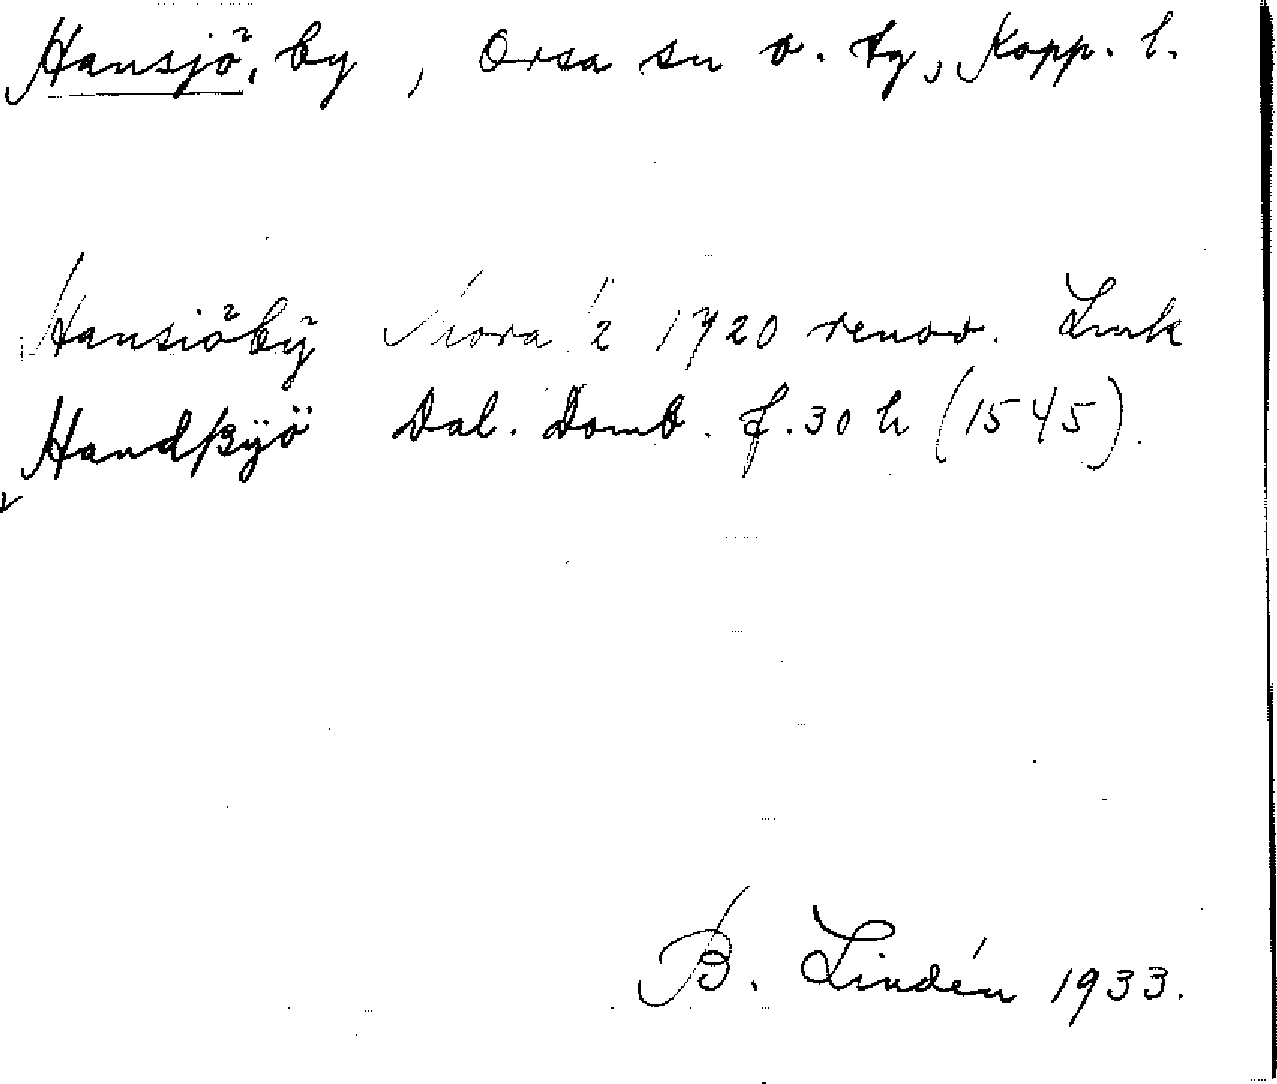 Hansjö, by, Orsa sn o. tg, Kopp. l.
Hansiöbÿ Mora 1/2 1720 renov. Lmk
Handßÿö Dal. Domb. f. 30 h (1545).
B. Lindén 1933.